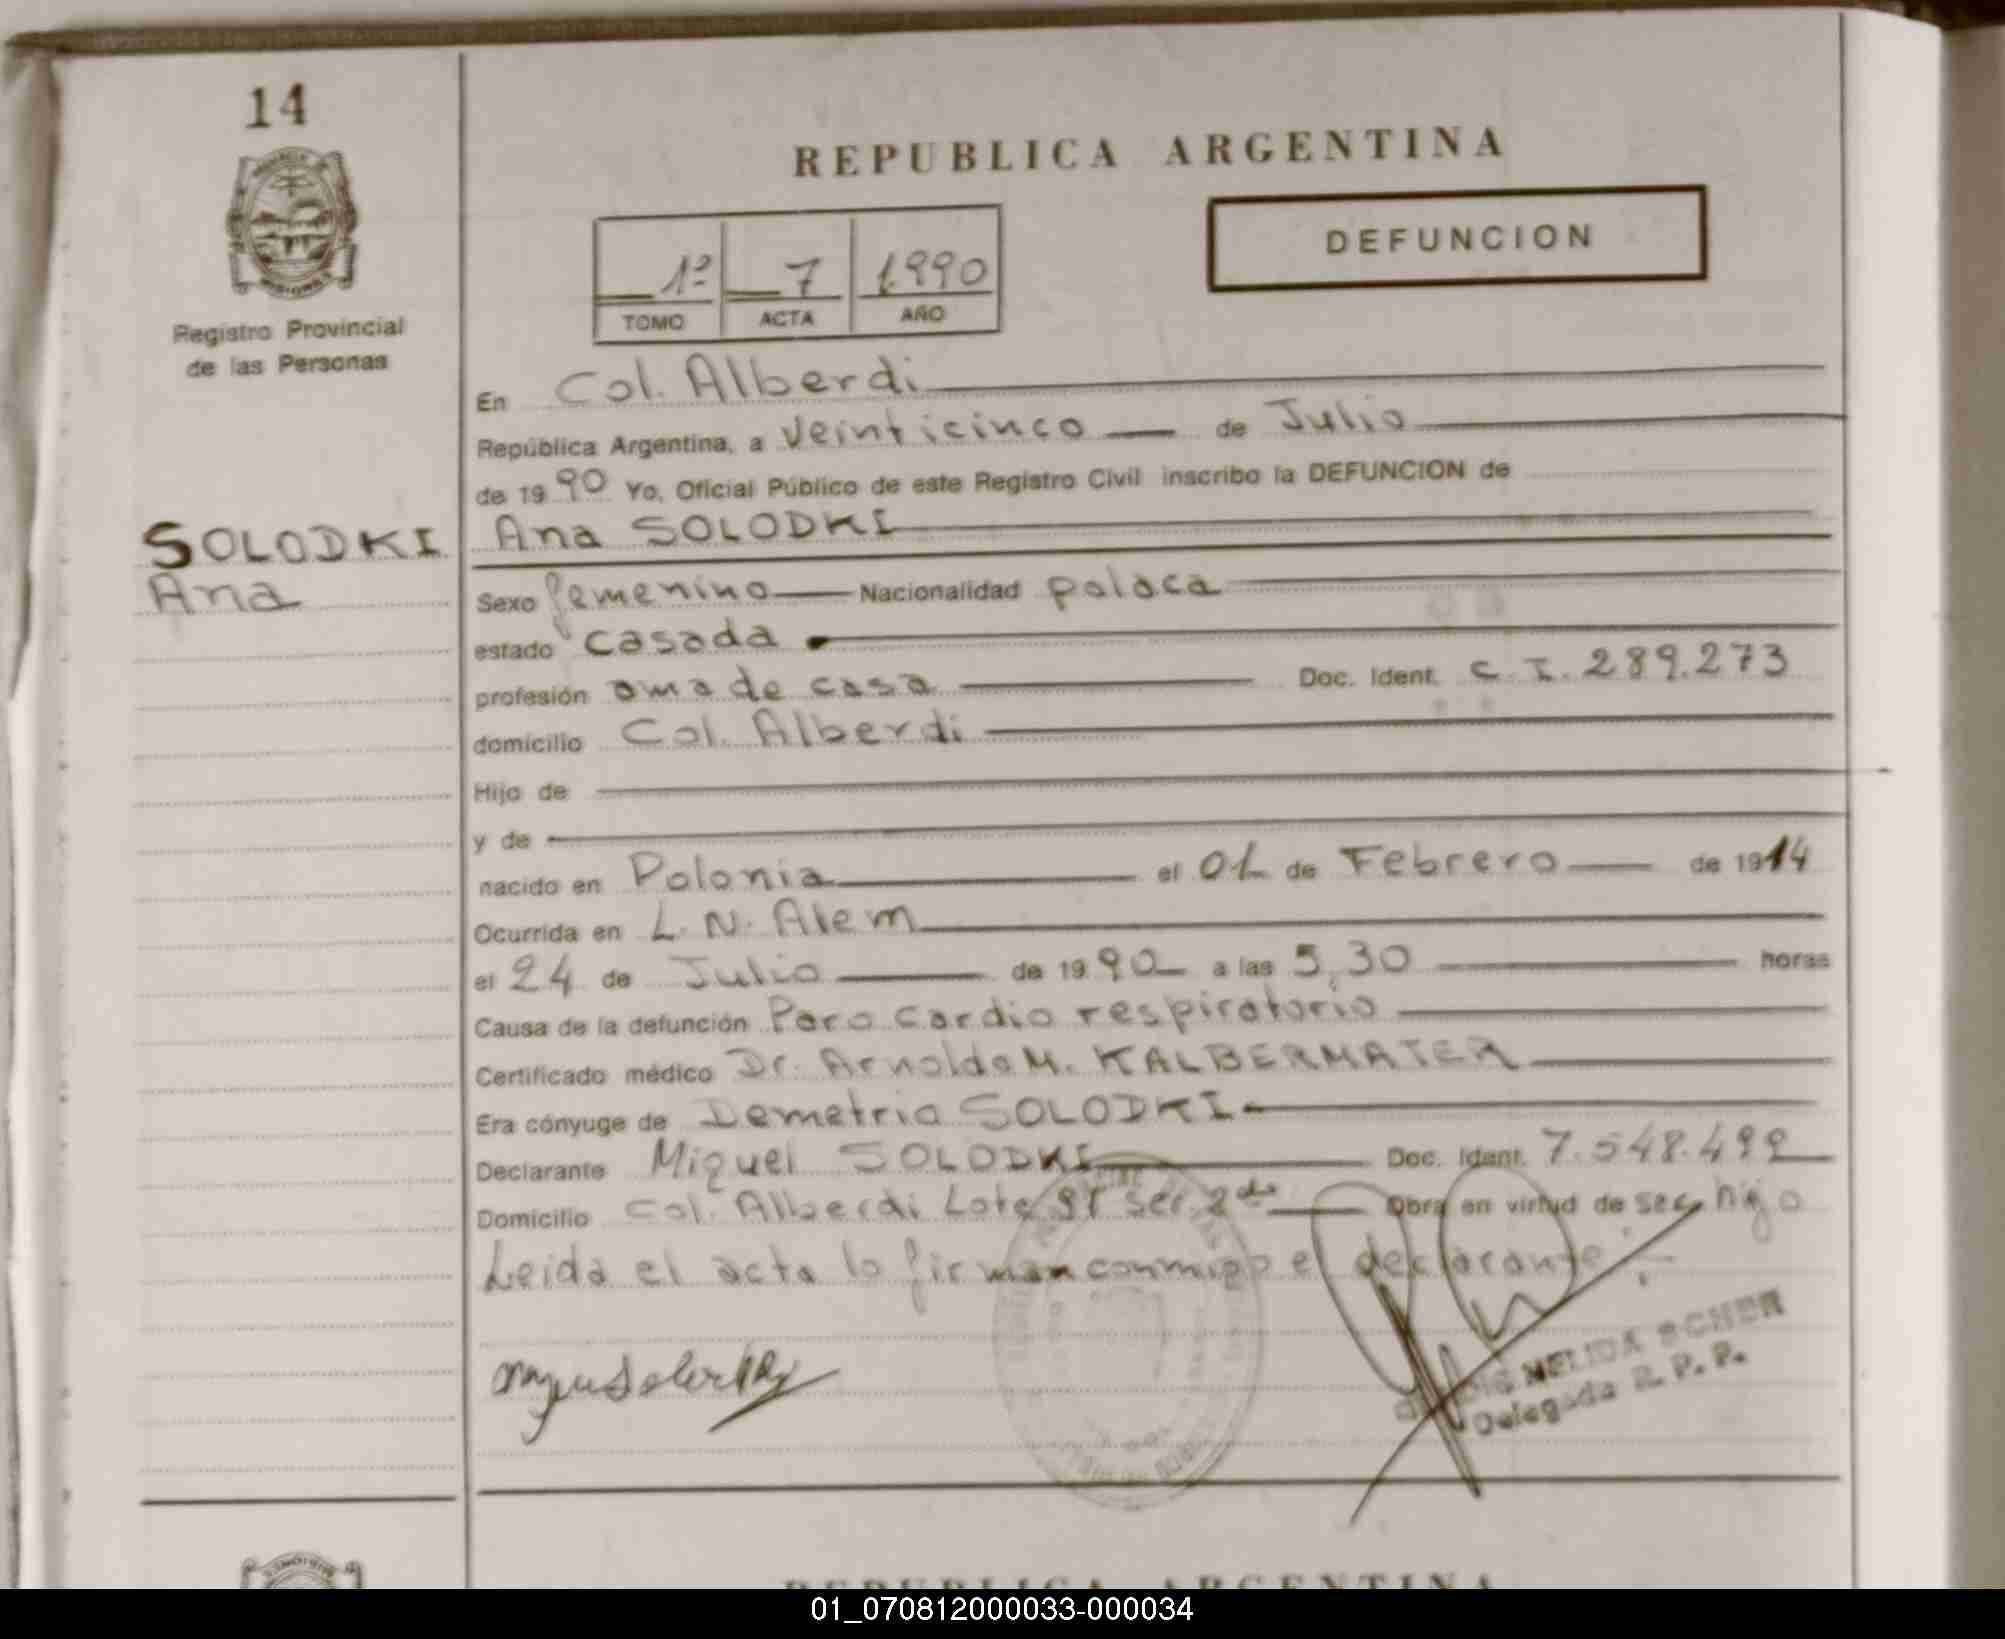 14
REPUBLICA ARGENTINA
DEFUNCION
1º 7 1.990
TOMO ACTA AÑO
Registro Provincial
de las Personas
En Col. Alberdi
República Argentina, a veinticinco de Julio
de 1990 Yo, Oficial Público de este Registro Civil inscribo la DEFUNCION de
SOLODKI
Ana
Ana SOLODKI
Sexo femenino Nacionalidad polaca
estado casada
profesión ama de casa Doc. Ident. C.I. 289.273
domicilio Col. Alberdi
Hijo de
y de
nacido en Polonia el 01 de Febrero de 1914
Ocurrida en L.N. Alem
el 24 de Julio de 1990 a las 5,30 horas
Causa de la defunción Paro cardio respiratorio
Certificado médico Dr. Arnoldo M. KALBERMATER
Era cónyuge de Demetrio SOLODKI
Declarante Miguel SOLODKI Doc. Ident. 7.548.499
Domicilio Col. Alberdi Lote 91 Sec. 2da Obra en virtud de ser hijo
Leida el acta lo firman conmigo el declarante.
NELIDA
Delegada R. P. P.
REPUBLICA ARGENTINA
01_070812000033-000034